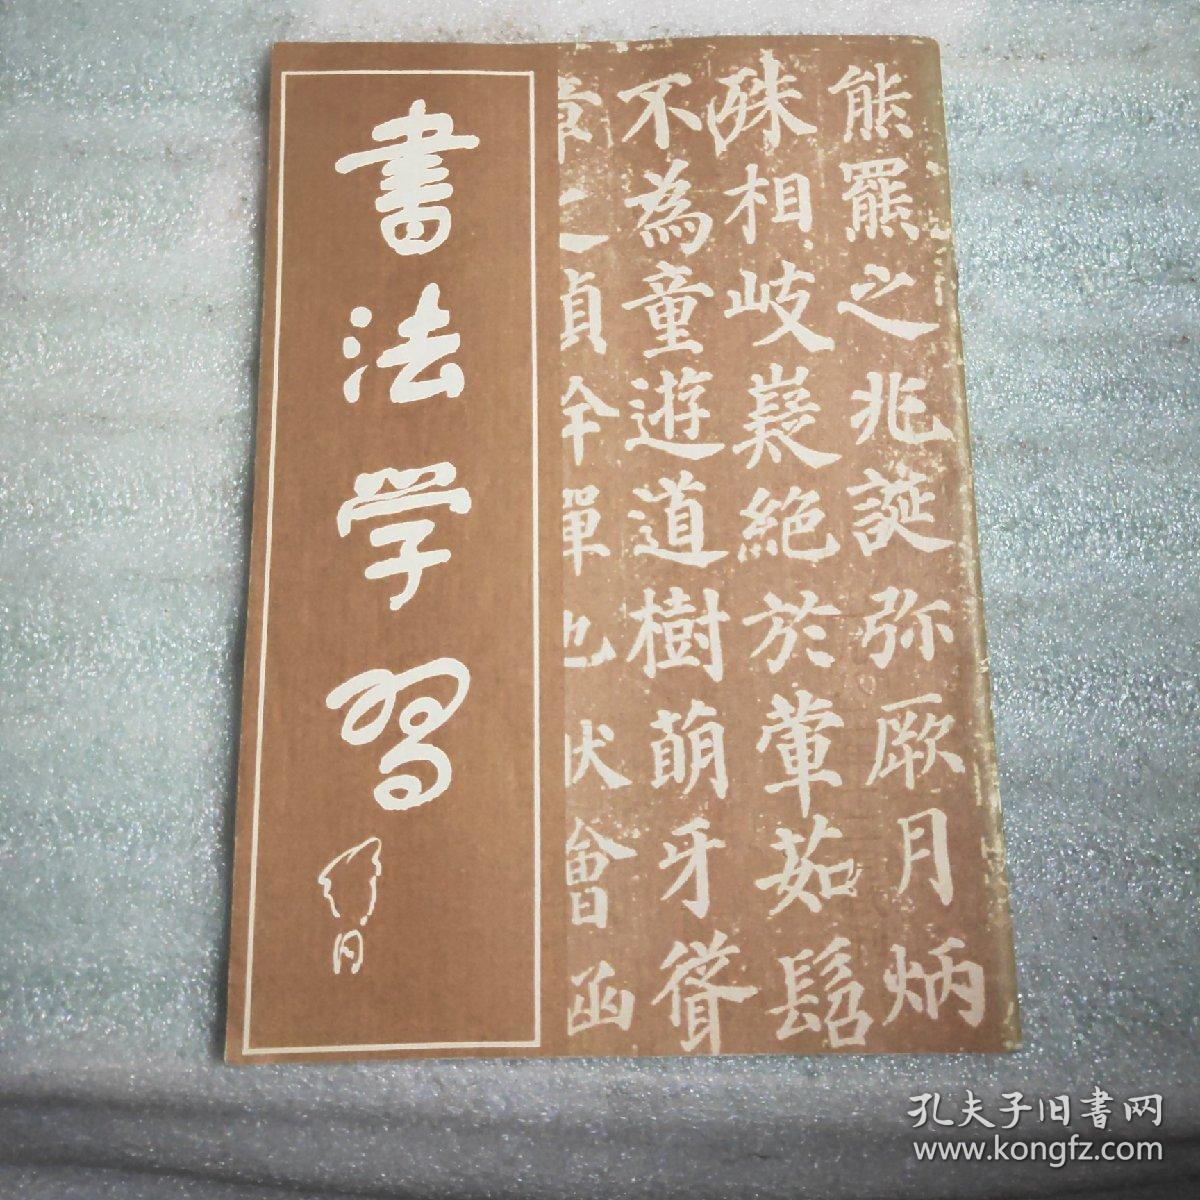 書法学習
熊羆之兆誕弥厥月炳
殊相岐嶷絶於葷茹髫
不為童遊道樹萌牙聳
章之貞幹單也犬會函
孔夫子旧書网
www.kongfz.com